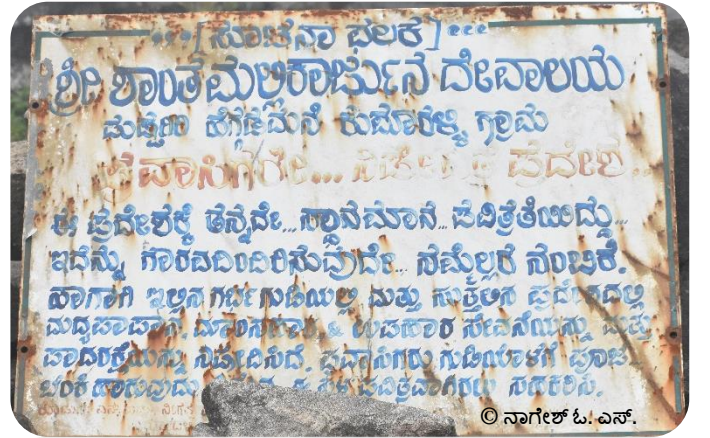 [ಸೂಚನಾ ಫಲಕ]
ಶ್ರೀ ಶಾಂತಮಲ್ಲಿಕಾರ್ಜುನ ದೇವಾಲಯ
ಹೆಗ್ಗಡಮನೆ ಕುಮಾರಳ್ಳಿ ಗ್ರಾಮ
ಪ್ರವಾಸಿಗರೇ... ಪ್ರದೇಶ..
ಈ ಪ್ರದೇಶಕ್ಕೆ ತನ್ನದೇ... ಸ್ಥಾನಮಾನ... ಪವಿತ್ರತೆಯಿದ್ದು...
ಇದನ್ನು ಗೌರವದಿಂದಿರಿಸುವುದೇ... ನಮ್ಮೆಲ್ಲರ ನಂಬಿಕೆ.
ಹಾಗಾಗಿ ಇಲ್ಲಿನ ಗರ್ಭಗುಡಿಯಲ್ಲಿ ಮತ್ತು ಸುತ್ತಲಿನ ಪ್ರದೇಶದಲ್ಲಿ
ಮದ್ಯಪಾನ, ಮಾಂಸಾಹಾರ & ಉಪಹಾರ ಸೇವನೆಯನ್ನು ಮತ್ತು
ಪಾದರಕ್ಷೆಯನ್ನು ನಿಷೇದಿಸಿದೆ. ಪ್ರವಾಸಿಗರು ಗುಡಿಯೊಳಗೆ ಪೂಜೆ
ಪವಿತ್ರವಾಗಿರಲು ಸಹಕರಿಸಿ.
© ನಾಗೇಶ್ ಓ. ಎಸ್.